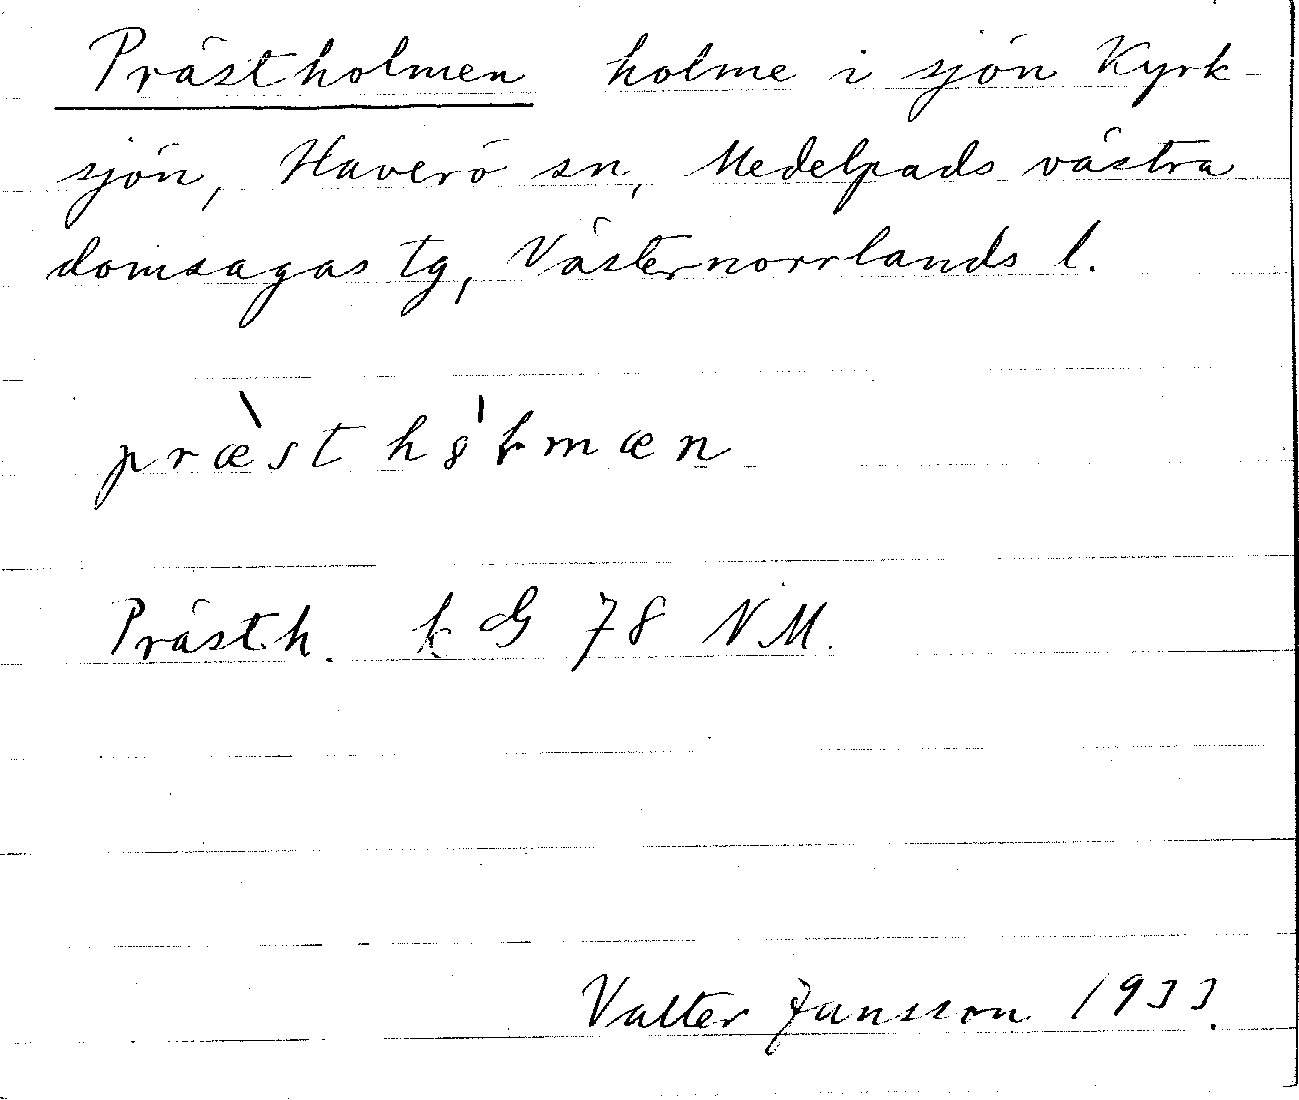 Prästholmen holme i sjön Kyrk-
sjön, Haverö sn, Medelpads västra
domsagas tg, Västernorrlands l.
præ̀sth8̍ɫmæn
Prästh. k G 78 NM.
Valter Jansson 1933.